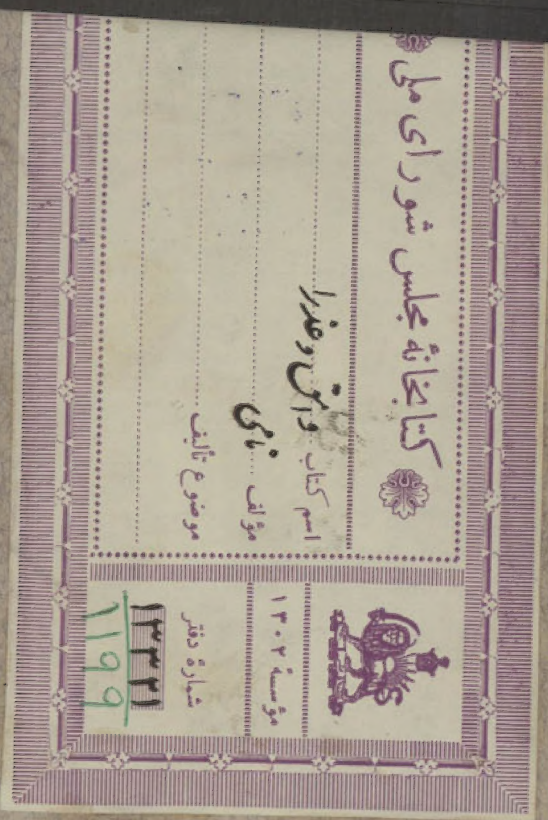 کتابخانهٔ مجلس شورای ملی
اسم کتاب وامق و عذرا
مؤلف نامی
موضوع تألیف
مؤسسهٔ ۱۳۰۲
شمارهٔ دفتر
۱۳۳۲۱
۱۱۹۹